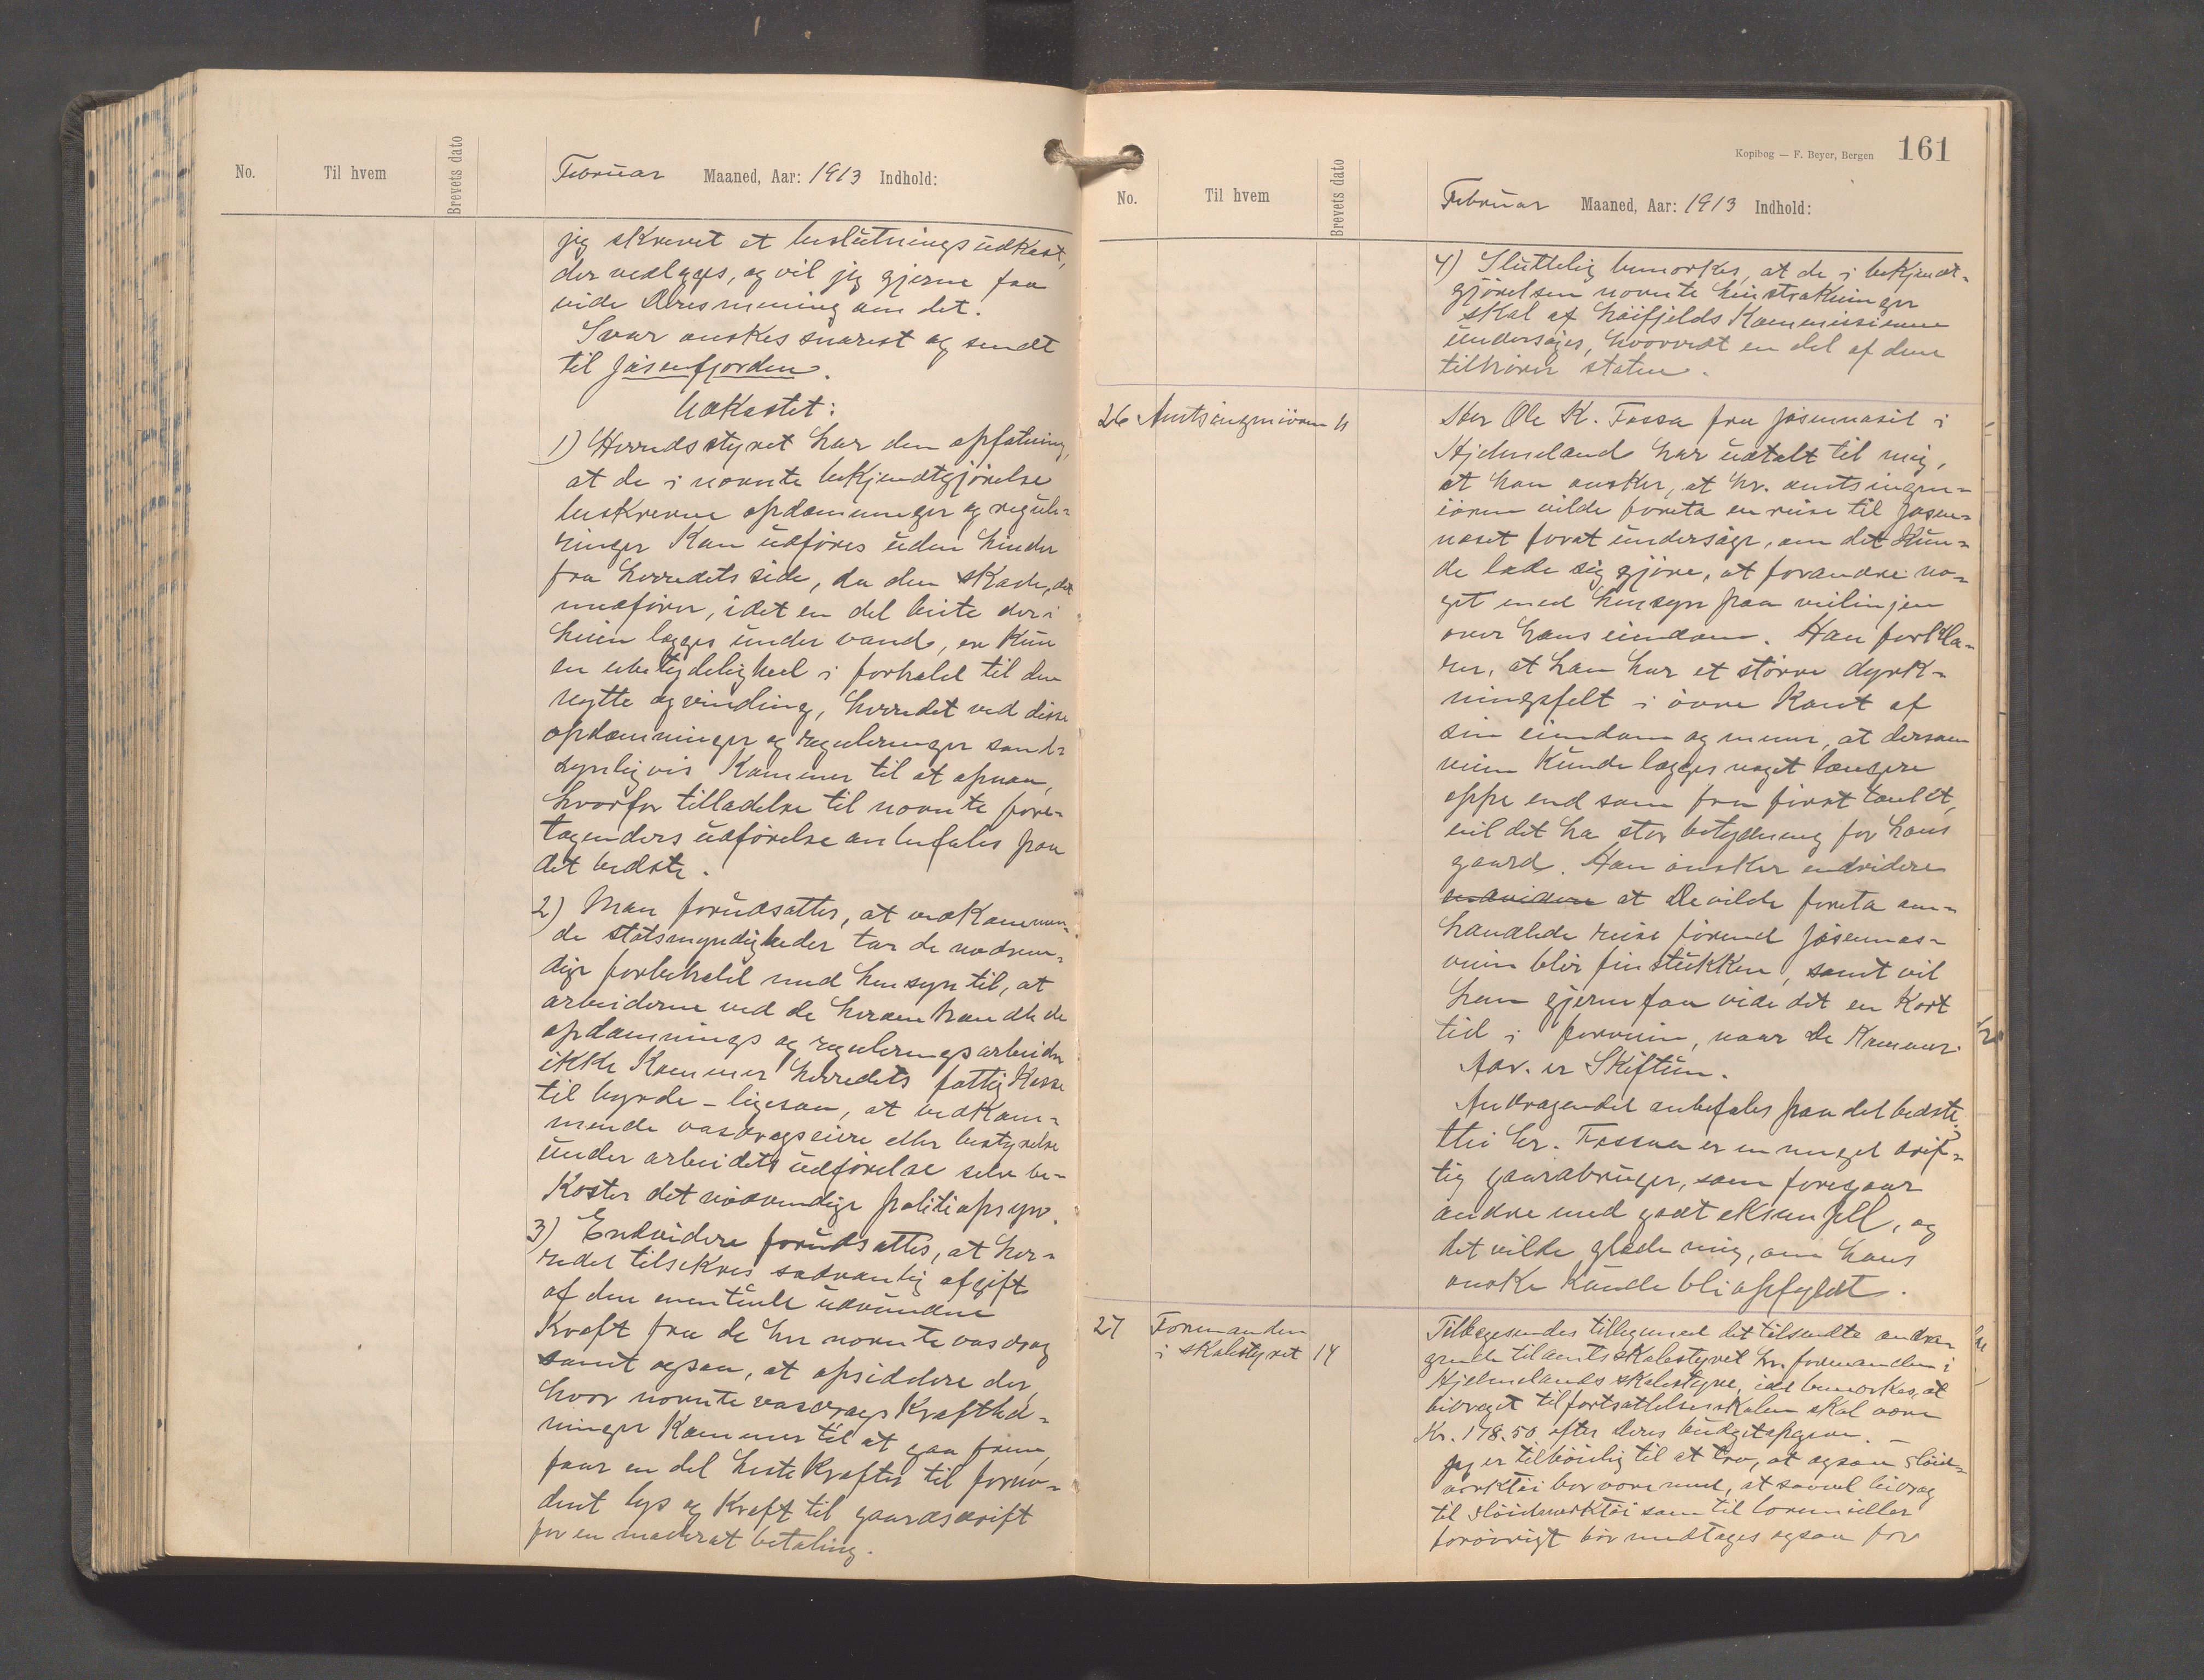 No.
Til hvem
Brevets dato
Februar Maaned, Aar: 1913 Indhold:
jeg skrevet et beslutningsudkast,
der vedlægges, og vil jeg gjerne faa
vide Deres mening om det.
Svar ønskes snarest og sendt
til Jøsenfjorden.
Udkastet:
1) Herredsstyret har den opfatning,
at de i nævnte bekjendtgjørelse
beskrevne opdæmninger og regule-
ringer kan udføres uden hinder
fra herredets side, da den skade, det
medfører, idet en del beite der i
heien lægges under vand, er kun
en ubetydelighed i forhold til den
nytte og vinding, herredet ved disse
opdæmninger og reguleringer sand-
synligvis kommer til at opnaa,
hvorfor tilladelse til nævnte fore-
tagenders udførelse anbefales paa
det bedste.
2) Man forudsætter, at vedkommen-
de statsmyndigheder tar de nødven-
dige forbehold med hensyn til, at
arbeiderne ved de heromhandlede
opdæmnings og reguleringsarbeider
ikke kommer herredets fattigkasse
til byrde - ligesaa, at vedkom-
mende vasdragseiere eller bestyrelse
under arbeidets udførelse selv be-
koster det nødvendige politiopsyn.
3) Endvidere forudsættes, at her-
redet tilsikres sædvanlig afgift
af den eventuelt udvundne
kraft fra de her nævnte vasdrag
samt ogsaa, at opsiddere der,
hvor nævnte vasdrags kraftled-
ninger kommer til at gaa frem,
faar en del hestekræfter til fornø-
dent lys og kraft til gaardsdrift
for en moderat betaling.
Kopibog — F. Beyer, Bergen 161
No.
Til hvem
Brevets dato
Februar Maaned, Aar: 1913 Indhold:
4) Sluttelig bemærkes, at de i bekjendt-
gjørelsen nævnte heistrækninger
skal af høifjeldskommissionen
undersøges, hvorvidt en del af dem
tilhører staten.
26 Amtsingeniøren 11
Her Ole K. Fossa fra Jøsenneset i
Hjelmeland har udtalt til mig,
at han ønsker, at hr. amtsingen-
iøren vilde foreta en reise til Jøsen-
neset forat undersøge, om det kun-
de lade sig gjøre, at forandre no-
get med hensyn paa veilinjen
over hans eiendom. Han forkla-
rer, at han har et større dyrk-
ningsfelt i øvre kant af
sin eiendom og mener, at dersom
veien kunde lægges noget længere
oppe end som fra først tænkt,
vil det ha stor betydning for hans
gaard. Han ønsker endvidere
endvidere at De vilde foreta om-
handlede reise førend Jøsennes-
veien blir finstukken, samt vil
han gjerne faa vide det en kort
tid i forveien, naar De kommer.
Adr. er Skiftun.
Andragendet anbefales paa det bedste,
thi hr. Fossa er en meget drif-
tig gaardbruger, som foregaar
andre med godt eksempel, og
det vilde glæde mig, om hans
ønske kunde bli opfyldt.
27 Formanden
i skolestyret 14
Tilbagesendes tillegemed det tilsendte andra-
gende til amtsskolestyret hr. formanden i
Hjelmelands skolestyre, idet bemærkes, at
bidraget til fortsættelsesskolen skal være
Kr. 178.50 efter Deres budgetopgave. —
Jeg er tilbøielig til at tro, at ogsaa sløid-
værktøi bør være med, at saavel bidrag
til sløidværktøi som til læremidler
forøvrigt bør medtages ogsaa for